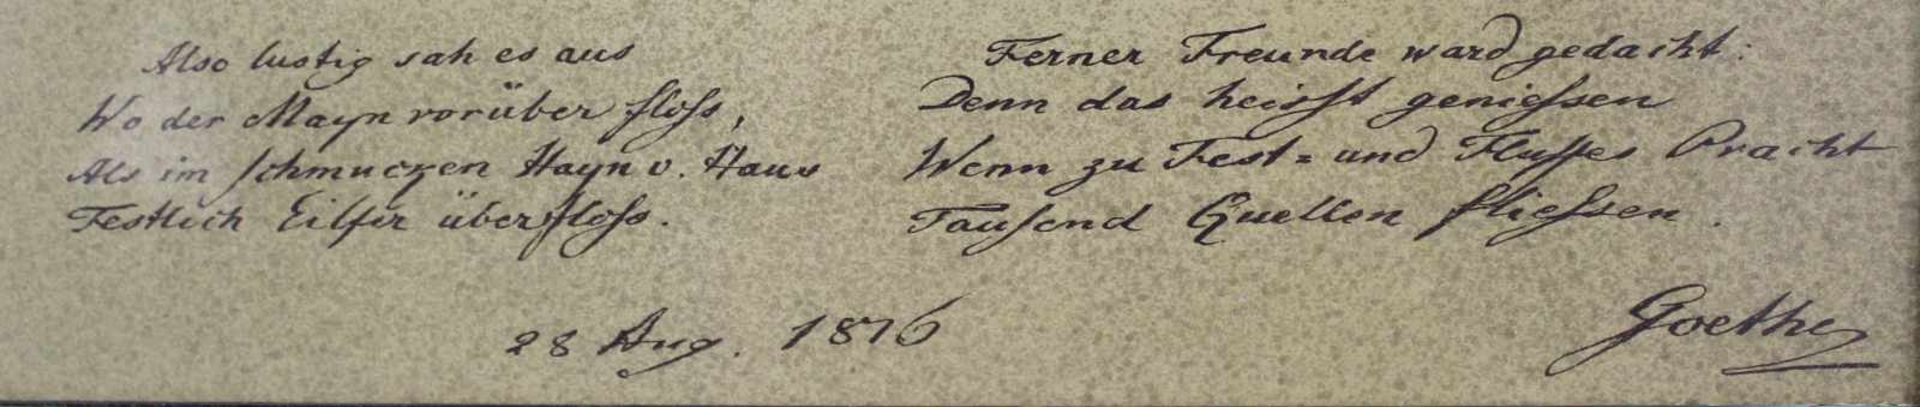 Also lustig sah es aus
Wo der Mayn vorüber floſs,
Als im ſchmucken Hayn v. Haus
Festlich Eilfer überfloſs.
Ferner Freunde ward gedacht:
Denn das heiſst genieſsen
Wenn zu Fest= und Fluſſes Pracht
Tauſend Quellen flieſsen.
28 Aug. 1816
Goethe